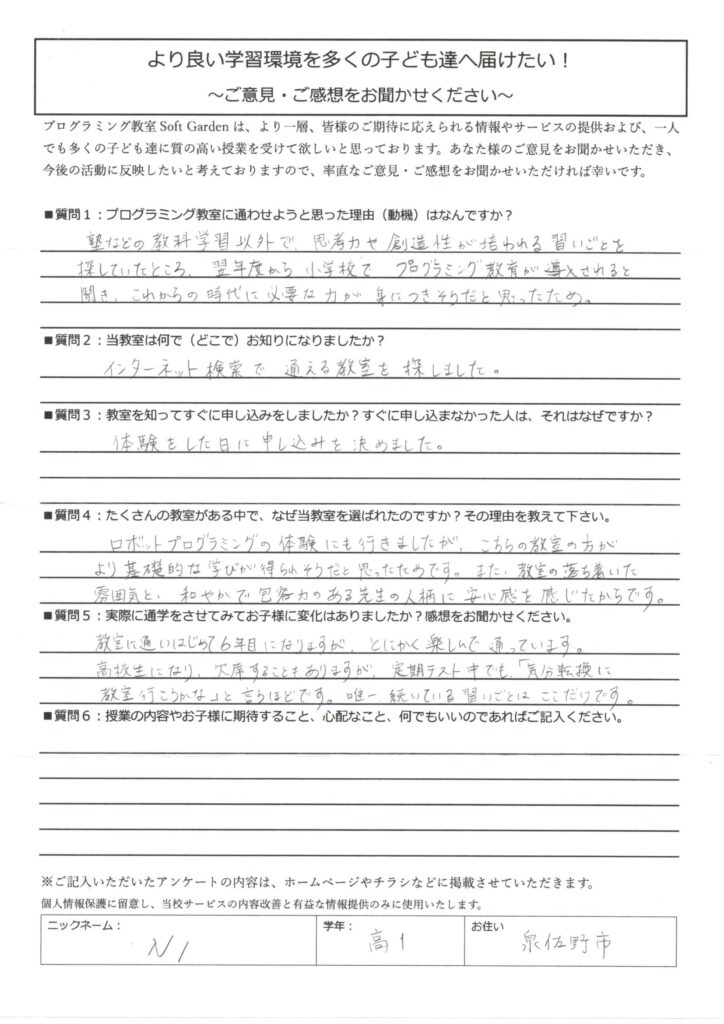 より良い学習環境を多くの子ども達へ届けたい！
～ご意見・ご感想をお聞かせください～
プログラミング教室 Soft Garden は、より一層、皆様のご期待に応えられる情報やサービスの提供および、一人
でも多くの子ども達に質の高い授業を受けて欲しいと思っております。あなた様のご意見をお聞かせいただき、
今後の活動に反映したいと考えておりますので、率直なご意見・ご感想をお聞かせいただければ幸いです。
■質問１：プログラミング教室に通わせようと思った理由（動機）はなんですか？
塾などの教科学習以外で、思考力や創造性が培われる習いごとを
探していたところ、翌年度から小学校でプログラミング教育が導入されると
聞き、これからの時代に必要な力が身につきそうだと思ったため。
■質問２：当教室は何で（どこで）お知りになりましたか？
インターネット検索で通える教室を探しました。
■質問３：教室を知ってすぐに申し込みをしましたか？すぐに申し込まなかった人は、それはなぜですか？
体験をした日に申し込みを決めました。
■質問４：たくさんの教室がある中で、なぜ当教室を選ばれたのですか？その理由を教えて下さい。
ロボットプログラミングの体験にも行きましたが、こちらの教室の方が
より基礎的な学びが得られそうだと思ったためです。また、教室の落ち着いた
雰囲気と、和やかで包容力のある先生の人柄に安心感を感じたからです。
■質問５：実際に通学をさせてみてお子様に変化はありましたか？感想をお聞かせください。
教室に通いはじめて6年目になりますが、とにかく楽しんで通っています。
高校生になり、欠席することもありますが、定期テスト中でも、「気分転換に
教室行こうかな」と言うほどです。唯一、続いている習いごとはここだけです。
■質問６：授業の内容やお子様に期待すること、心配なこと、何でもいいのであればご記入ください。
※ご記入いただいたアンケートの内容は、ホームページやチラシなどに掲載させていただきます。
個人情報保護に留意し、当校サービスの内容改善と有益な情報提供のみに使用いたします。
ニックネーム： 学年： お住い
N1 高1 泉佐野市